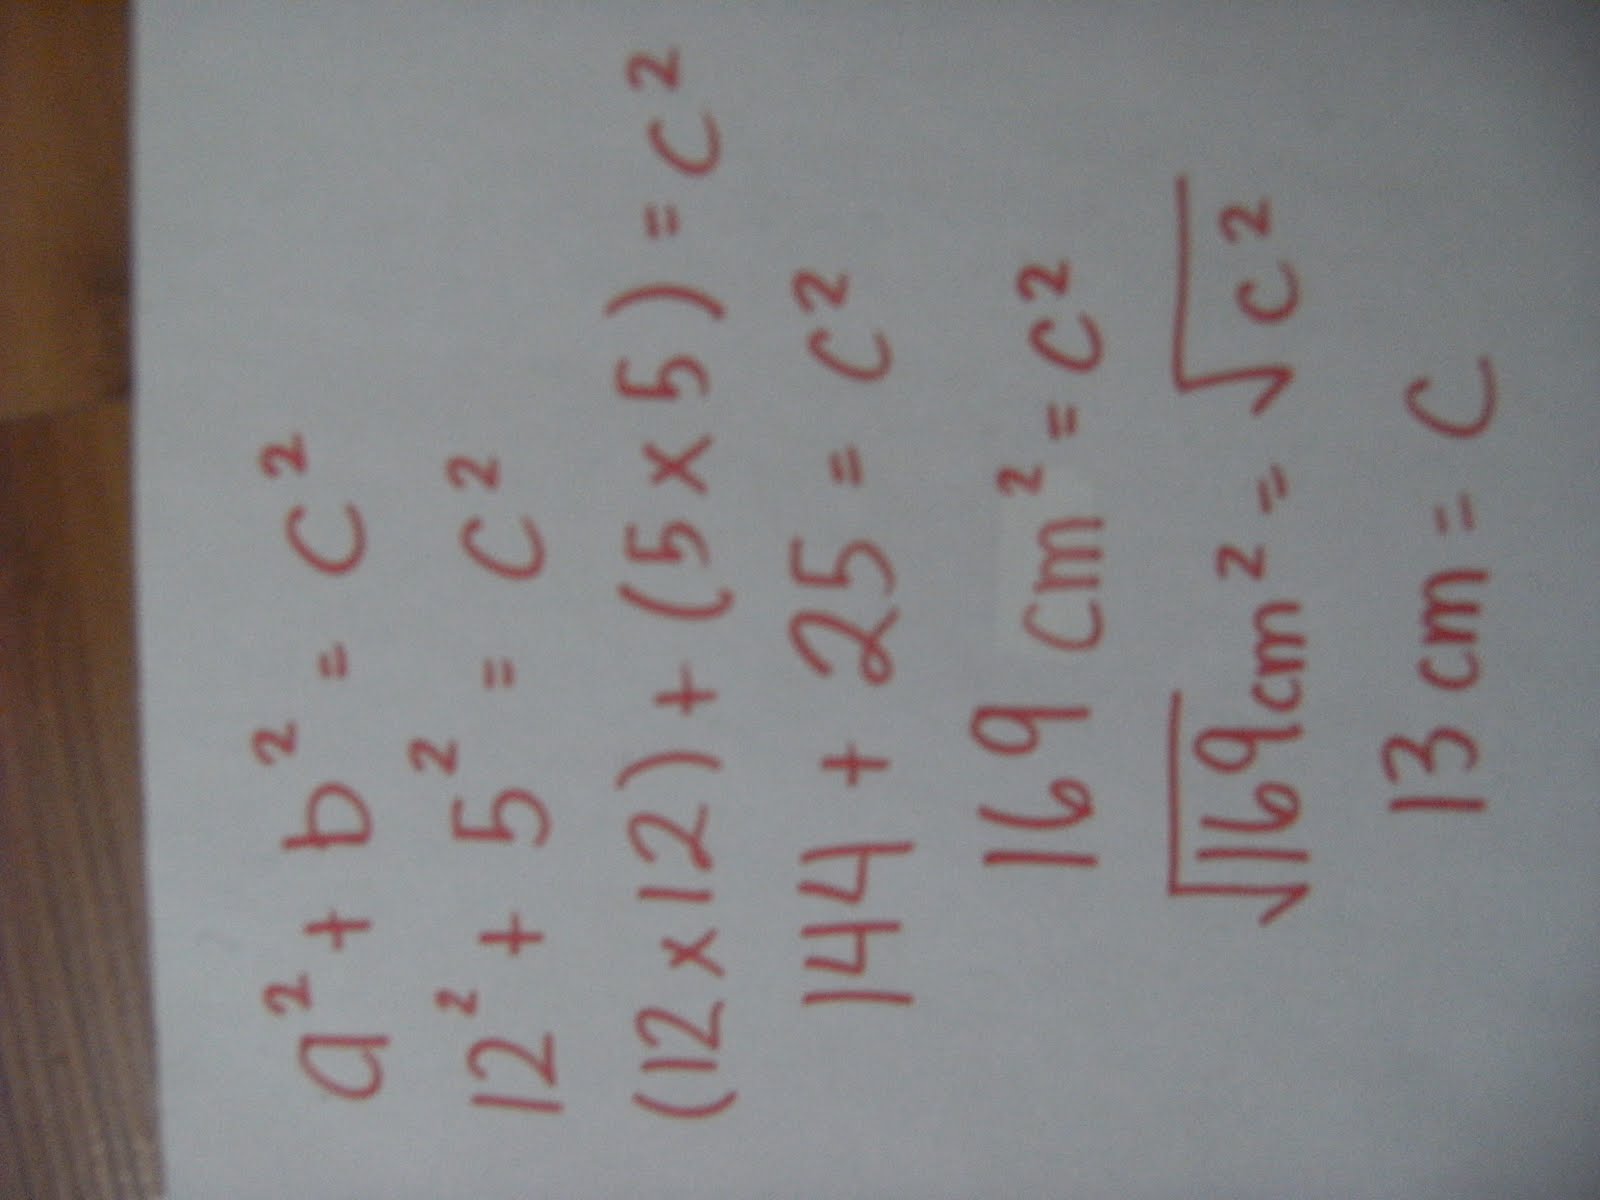 a² + b² = c²
12² + 5² = c²
(12 x 12) + (5 x 5) = c²
144 + 25 = c²
169 cm² = c²
√169cm² = √c²
13 cm = c